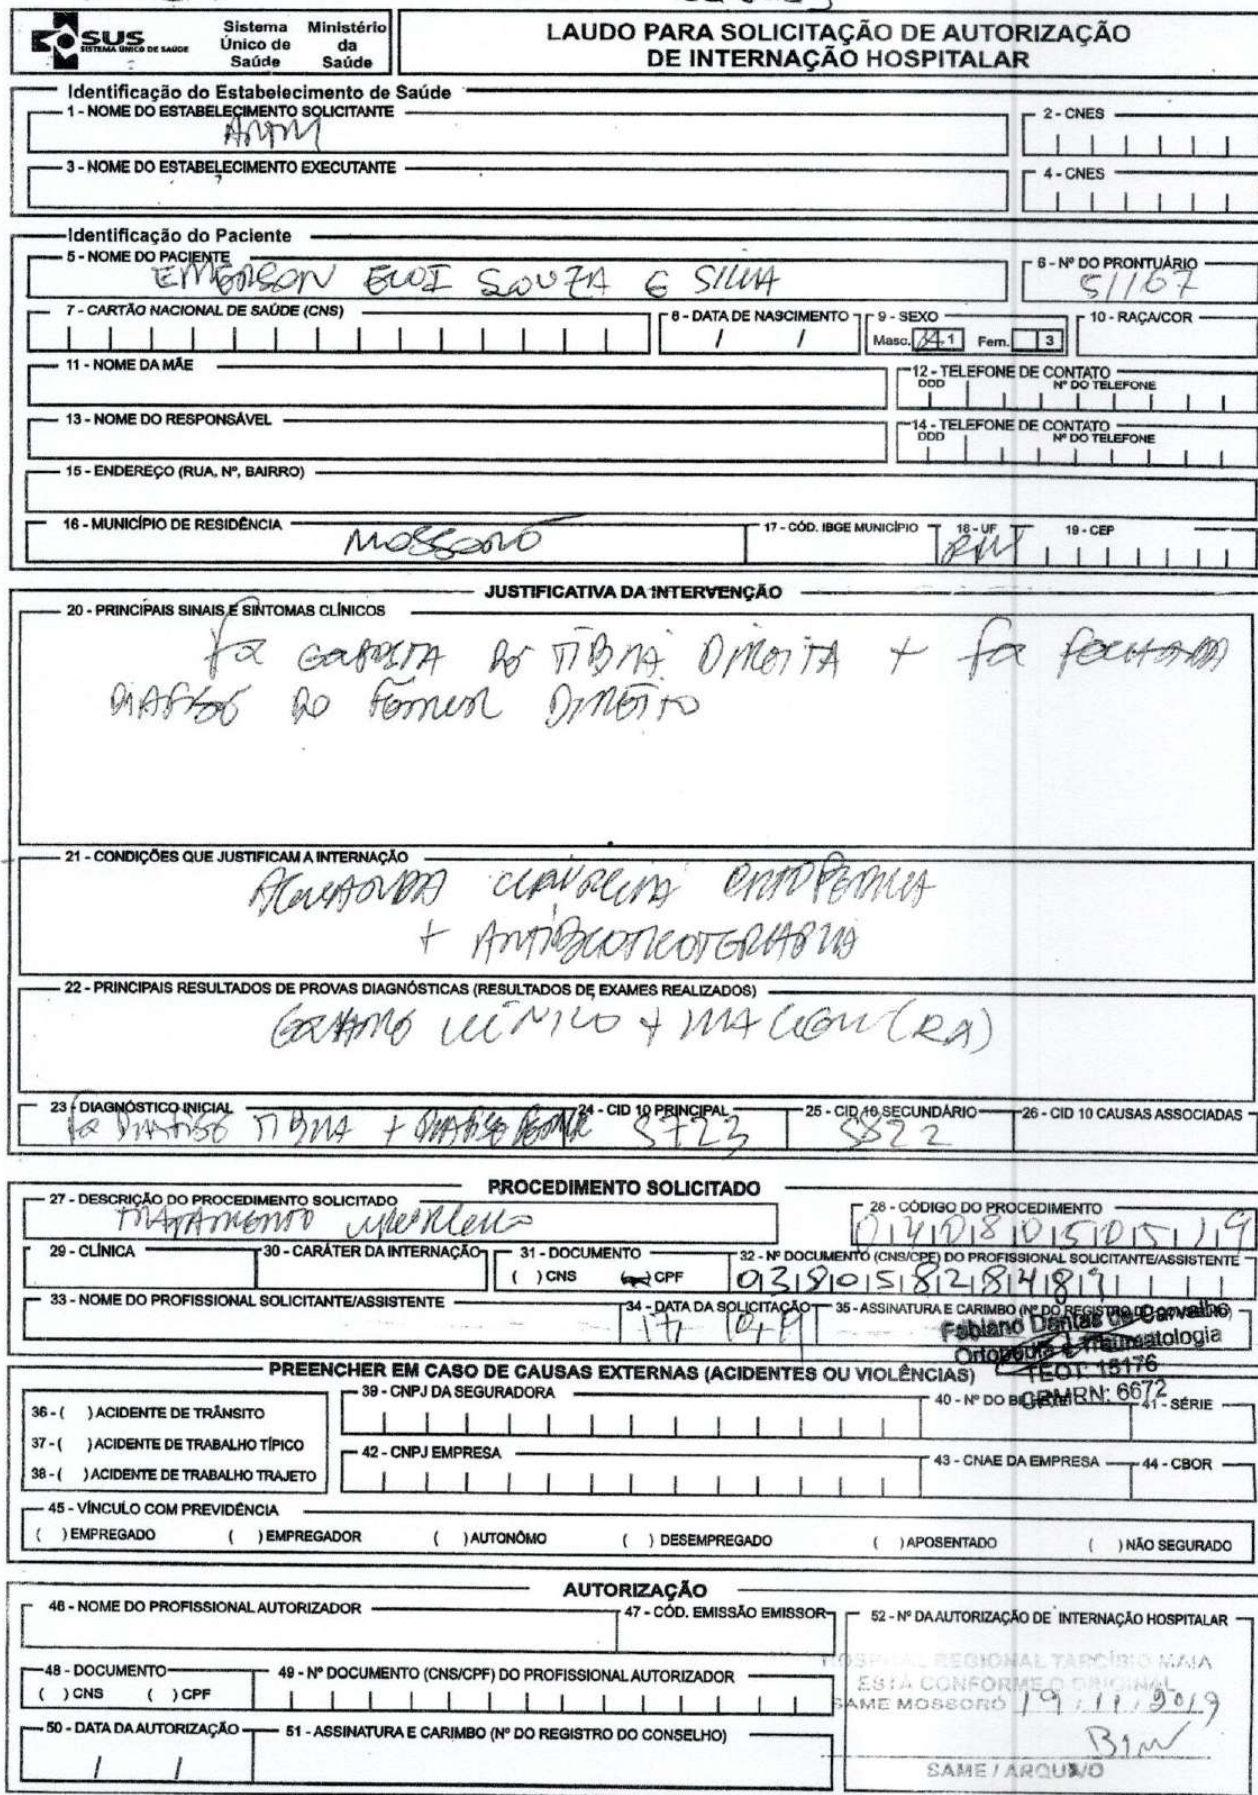 SUS
SISTEMA ÚNICO DE SAÚDE
Sistema Único de Saúde
Ministério da Saúde
LAUDO PARA SOLICITAÇÃO DE AUTORIZAÇÃO
DE INTERNAÇÃO HOSPITALAR
Identificação do Estabelecimento de Saúde
1 - NOME DO ESTABELECIMENTO SOLICITANTE
2 - CNES
3 - NOME DO ESTABELECIMENTO EXECUTANTE
4 - CNES
Identificação do Paciente
5 - NOME DO PACIENTE
EMERSON ELOI SOUZA E SILVA
6 - Nº DO PRONTUÁRIO
51167
7 - CARTÃO NACIONAL DE SAÚDE (CNS)
8 - DATA DE NASCIMENTO
/ /
9 - SEXO
Masc. 1 Fem. 3
10 - RAÇA/COR
11 - NOME DA MÃE
12 - TELEFONE DE CONTATO
DDD Nº DO TELEFONE
13 - NOME DO RESPONSÁVEL
14 - TELEFONE DE CONTATO
DDD Nº DO TELEFONE
15 - ENDEREÇO (RUA, Nº, BAIRRO)
16 - MUNICÍPIO DE RESIDÊNCIA
MOSSORÓ
17 - CÓD. IBGE MUNICÍPIO
18 - UF
RN
19 - CEP
JUSTIFICATIVA DA INTERVENÇÃO
20 - PRINCIPAIS SINAIS E SINTOMAS CLÍNICOS
fx EXPOSTA DE TÍBIA DIREITA + fx FECHADA
DIAFISE DO FÊMUR DIREITO
21 - CONDIÇÕES QUE JUSTIFICAM A INTERNAÇÃO
AGUARDA CIRURGIA ORTOPEDICA
+ ANTIBIOTICOTERAPIA
22 - PRINCIPAIS RESULTADOS DE PROVAS DIAGNÓSTICAS (RESULTADOS DE EXAMES REALIZADOS)
EXAME CLÍNICO + IMAGEM (RX)
23 - DIAGNÓSTICO INICIAL
fx DIAFISE TIBIA + DIAFISE FEMUR
24 - CID 10 PRINCIPAL
S723
25 - CID 10 SECUNDÁRIO
S822
26 - CID 10 CAUSAS ASSOCIADAS
PROCEDIMENTO SOLICITADO
27 - DESCRIÇÃO DO PROCEDIMENTO SOLICITADO
TRATAMENTO CIRURGICO
28 - CÓDIGO DO PROCEDIMENTO
0408050519
29 - CLÍNICA
30 - CARÁTER DA INTERNAÇÃO
31 - DOCUMENTO
( ) CNS ( ) CPF
32 - Nº DOCUMENTO (CNS/CPF) DO PROFISSIONAL SOLICITANTE/ASSISTENTE
03805828489
33 - NOME DO PROFISSIONAL SOLICITANTE/ASSISTENTE
34 - DATA DA SOLICITAÇÃO
17/10/19
35 - ASSINATURA E CARIMBO (Nº DO REGISTRO DO CONSELHO)
Fabiano Dantas de Carvalho
Ortopedia e Traumatologia
TEOT: 15176
CRM/RN: 6672
PREENCHER EM CASO DE CAUSAS EXTERNAS (ACIDENTES OU VIOLÊNCIAS)
36 - ( ) ACIDENTE DE TRÂNSITO
37 - ( ) ACIDENTE DE TRABALHO TÍPICO
38 - ( ) ACIDENTE DE TRABALHO TRAJETO
39 - CNPJ DA SEGURADORA
40 - Nº DO
41 - SÉRIE
42 - CNPJ EMPRESA
43 - CNAE DA EMPRESA
44 - CBOR
45 - VÍNCULO COM PREVIDÊNCIA
( ) EMPREGADO ( ) EMPREGADOR ( ) AUTONÔMO ( ) DESEMPREGADO ( ) APOSENTADO ( ) NÃO SEGURADO
AUTORIZAÇÃO
46 - NOME DO PROFISSIONAL AUTORIZADOR
47 - CÓD. EMISSÃO EMISSOR
52 - Nº DA AUTORIZAÇÃO DE INTERNAÇÃO HOSPITALAR
48 - DOCUMENTO
( ) CNS ( ) CPF
49 - Nº DOCUMENTO (CNS/CPF) DO PROFISSIONAL AUTORIZADOR
50 - DATA DA AUTORIZAÇÃO
/ /
51 - ASSINATURA E CARIMBO (Nº DO REGISTRO DO CONSELHO)
HOSPITAL REGIONAL TARCÍSIO MAIA
ESTÁ CONFORME O ORIGINAL
SAME MOSSORÓ 19/11/2019
SAME / ARQUIVO